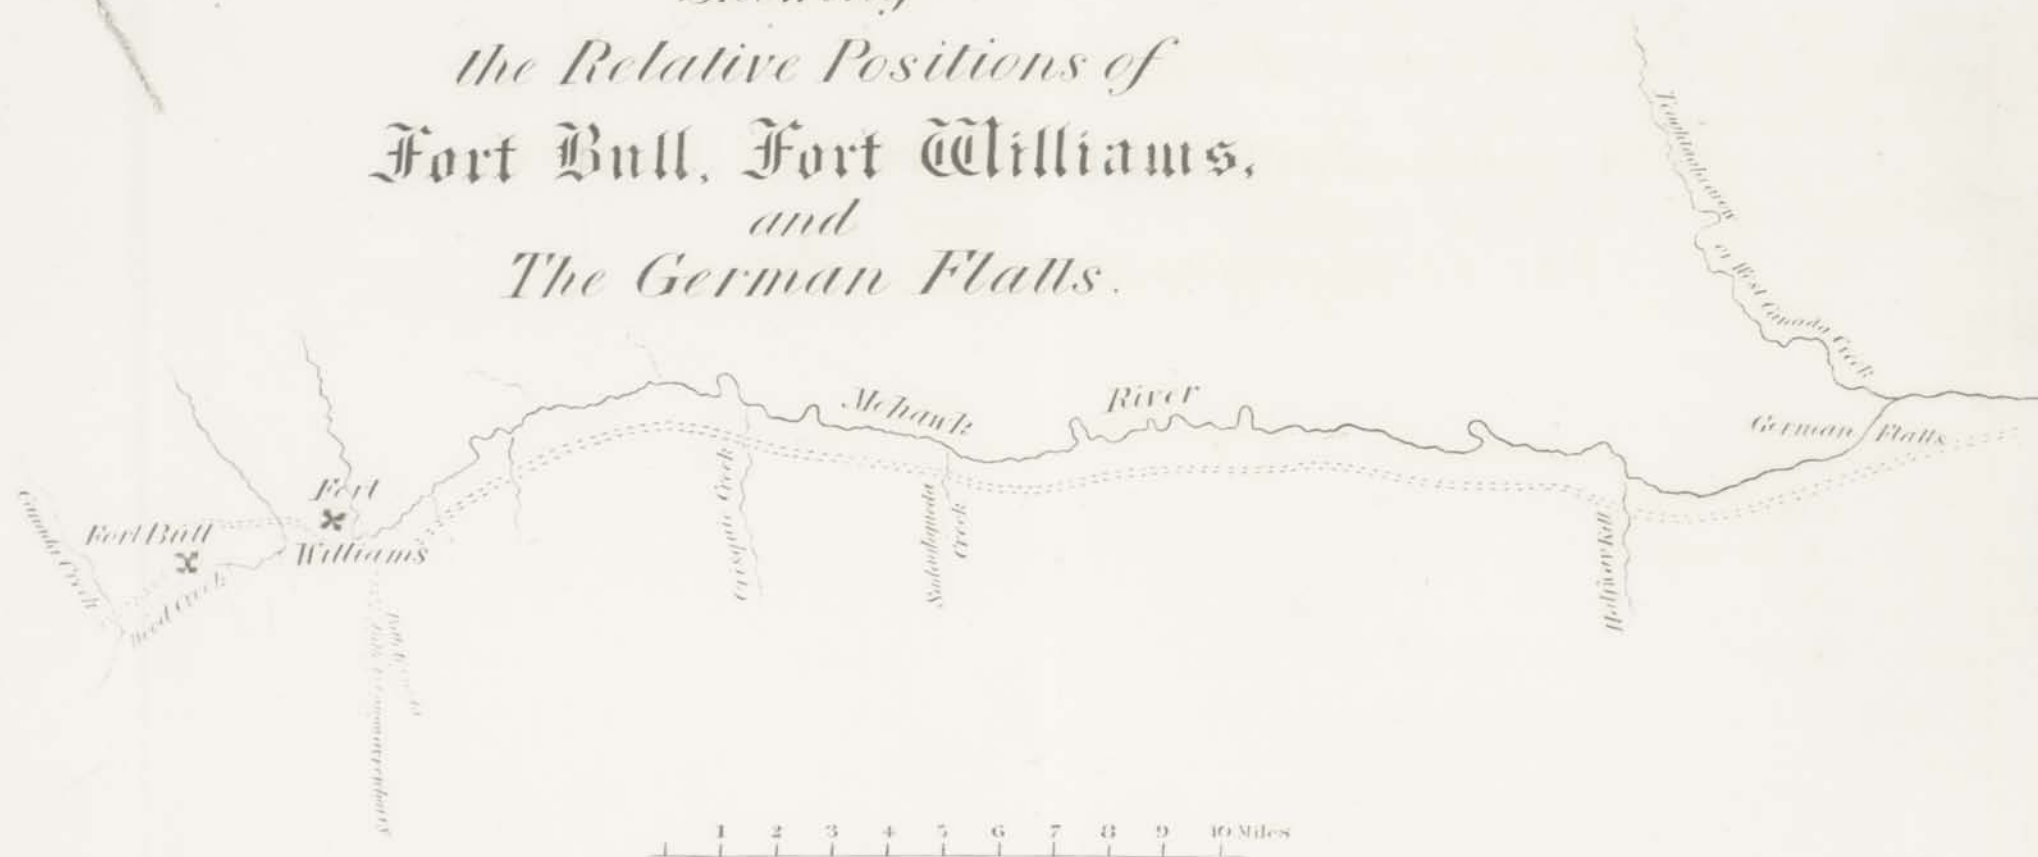 the Relative Positions of
Fort Bull, Fort Williams,
and
The German Flatts.
or West Canada Creek
Mohawk River
German Flatts
Fort
Williams
Fort Bull
Canada Creek
Wood Creek
Orisquic Creek
Creek
1 2 3 4 5 6 7 8 9 10 Miles